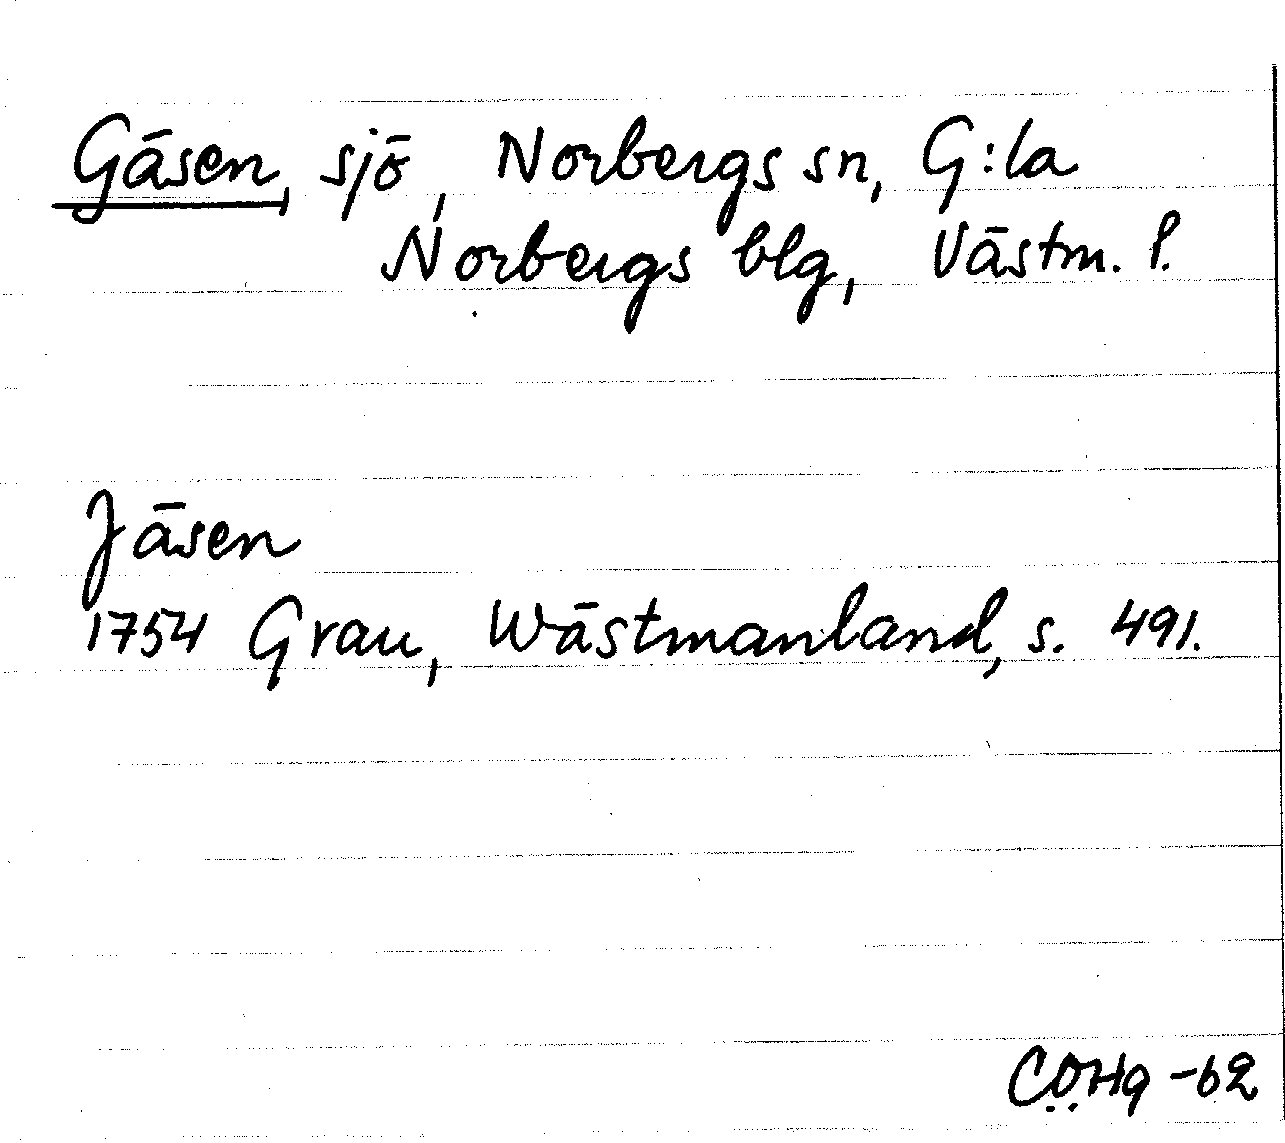 Gäsen, sjö, Norbergs sn, G:la
Norbergs blg, Västm. l.
Jäsen
1754 Grau, Wästmanland, s. 491.
COHg -62